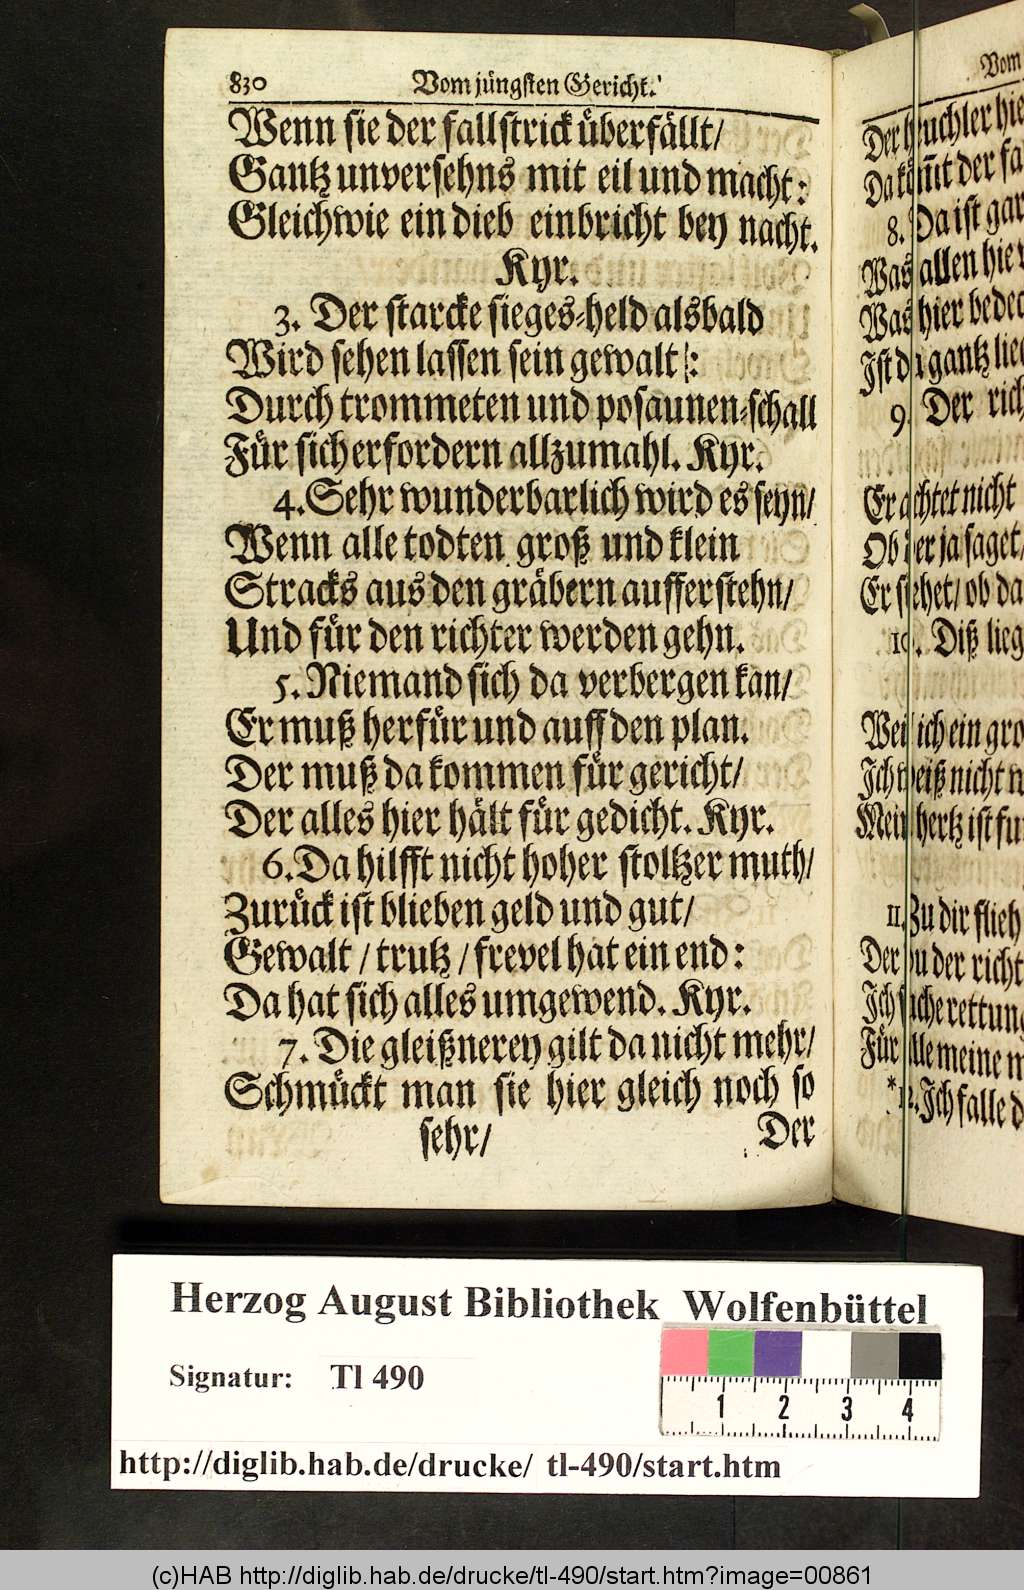 830 Vom jüngsten Gericht.
Wenn sie der fallstrick überfällt/
Gantz unversehns mit eil und macht:
Gleichwie ein dieb einbricht bey nacht.
Kyr.
3. Der starcke sieges-held alsbald
Wird sehen lassen sein gewalt |:
Durch trommeten und posaunen-schall
Für sich erfordern allzumahl. Kyr.
4. Sehr wunderbarlich wird es seyn/
Wenn alle todten groß und klein
Stracks aus den gräbern aufferstehn/
Und für den richter werden gehn.
5. Niemand sich da verbergen kan/
Er muß herfür und auff den plan.
Der muß da kommen für gericht/
Der alles hier hält für gedicht. Kyr.
6. Da hilfft nicht hoher stoltzer muth/
Zurück ist blieben geld und gut/
Gewalt / trutz / frevel hat ein end:
Da hat sich alles umgewend. Kyr.
7. Die gleißnerey gilt da nicht mehr/
Schmückt man sie hier gleich noch so
sehr/ Der
Vom
Der heuchler hie
Da kömt der fa
8. Da ist gar
Was allen hie
Was hier bedec
Ist da gantz lieg
9. Der rich
Er achtet nicht
Ob der ja saget/
Er siehet/ ob da
10. Diß lieg
Weil ich ein gro
Ich weiß nicht
Mein hertz ist fu
11. Zu dir flieh
Der du der richt
Ich suche rettung
Für alle meine
*12. Ich falle d
Herzog August Bibliothek Wolfenbüttel
Signatur: Tl 490
1 2 3 4
http://diglib.hab.de/drucke/ tl-490/start.htm
(c)HAB http://diglib.hab.de/drucke/tl-490/start.htm?image=00861